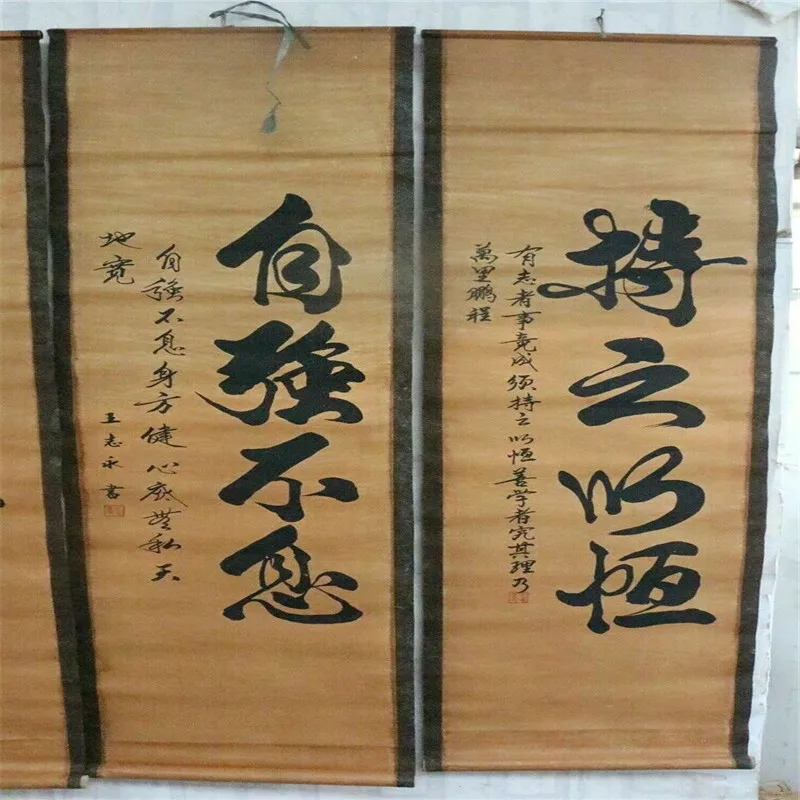 持之以恒
有志者事竟成须持之以恒善学者究其理乃
萬里鹏程
自强不息
自强不息身方健心底無私天
地寬
王志永書